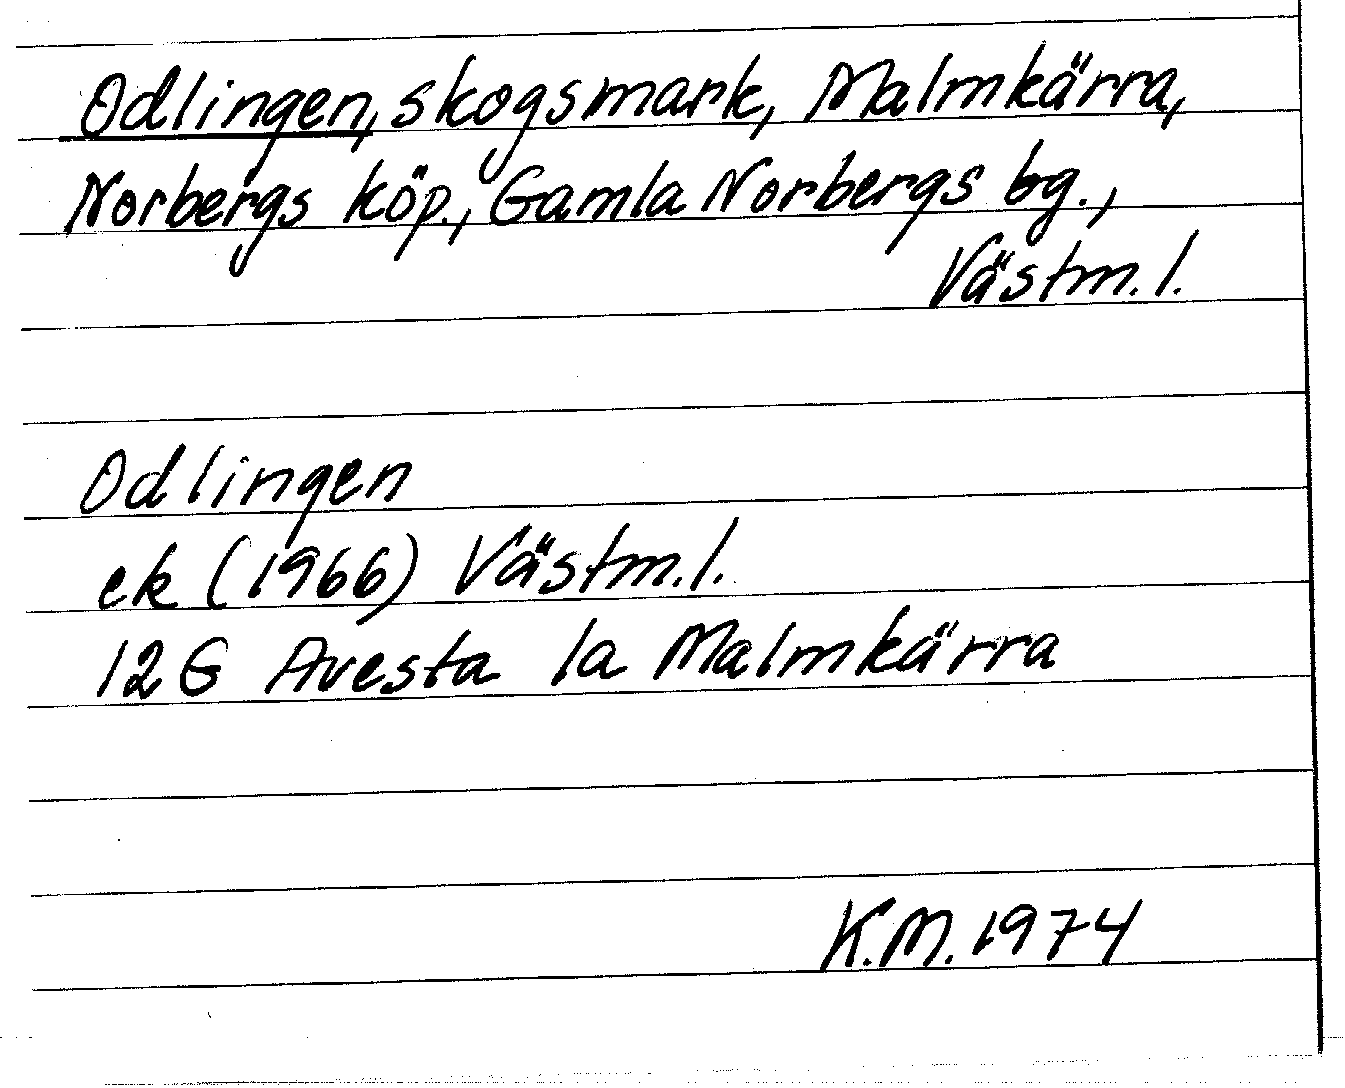 Odlingen, skogsmark, Malmkärra,
Norbergs köp., Gamla Norbergs bg.,
Västm.l.
Odlingen
ek (1966) Västm.l.
12G Avesta la Malmkärra
K.M. 1974